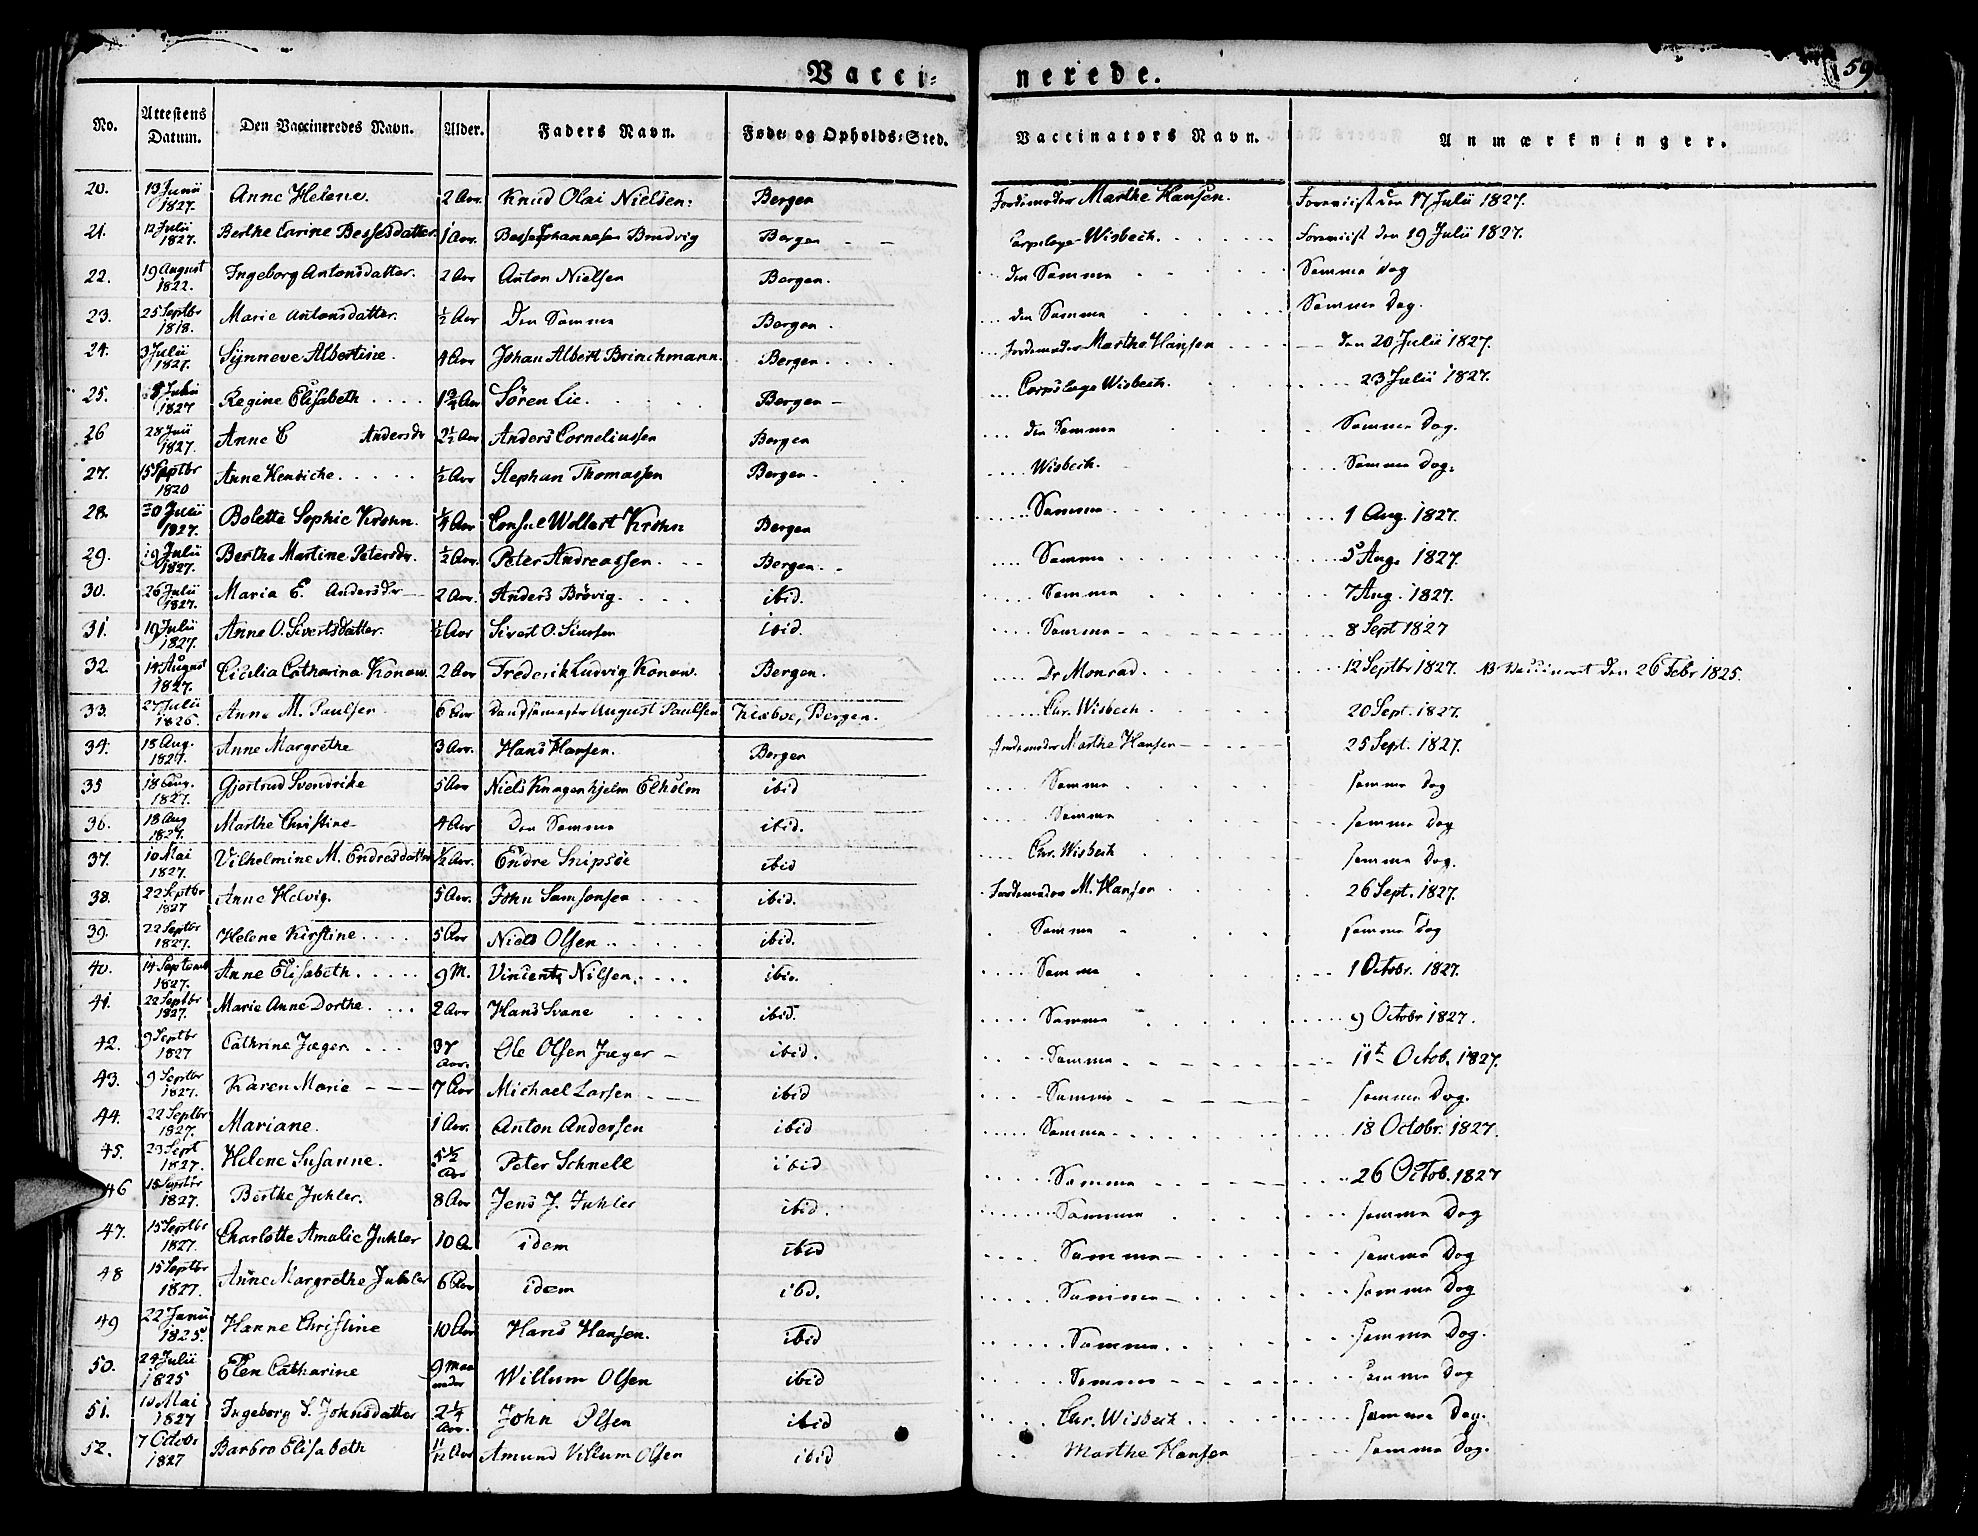 Vacci-
nerede.
59
No.
Attestens Datum.
Den Vaccineredes Navn.
Alder.
Faders Navn.
Føde- og Opholds-Sted.
Vaccinators Navn.
Anmærkninger.
20. 13 Junii 1827. Anne Helene. 2 Aar. Knud Olai Nielsen. Bergen Jordemoder Marthe Hansen. Foreviist den 17 Julii 1827.
21. 12 Julii 1827. Berthe Carine Bessesdatter 1 Aar. Besse Johannesen Bradvig Bergen Corpslæge Wisbech. Foreviist den 19 Julii 1827.
22. 19 August 1822. Ingeborg Antonsdatter. 2 Aar Anton Nielsen Bergen. den Samme Samme Dag
23. 25 Septbr 1818. Marie Antonsdatter. ½ Aar Den Samme Bergen. den Samme Samme Dag.
24. 3 Julii 1827. Synneve Albertine. 4 Aar Johan Albert Brinchmann. Bergen. Jordemoder Marthe Hansen den 20 Julii 1827.
25. 8 Julii 1827 Regine Elisabeth 1¾ Aar Sören Lie. Bergen Corpslæge Wisbech. 23 Julii 1827.
26 28 Junii 1827. Anne C Andersdr 2½ Aar Anders Corneliussen Bergen den Samme Samme Dag.
27. 15 Septbr 1820 Anne Henriche ½ Aar Stephan Thomassen Bergen. Wisbech. Samme Dag.
28. 30 Julii 1827. Bolette Sophie Krohn. ¼ Aar Consul Wollert Krohn Bergen Samme 1 Aug. 1827.
29. 19 Julii 1827. Berthe Martine Petersdr. ½ Aar. Peter Andreassen. Bergen. Samme 5 Aug. 1827.
30. 26 Julii 1827. Maria E. Andersdr 2 Aar. Anders Brövig. ibid. Samme 7 Aug. 1827.
31. 19 Julii 1827. Anne O. Sivertsdatter. ½ Aar Sivert O. Siursen ibid. Samme 8 Sept 1827
32. 14 August 1827. Cicilia Catharina Konow. 2 Aar Frederik Ludvig Konow. Bergen. Dr Monrad. 12 Septbr 1827. NB Vaccineret den 26 Febr 1825.
33. 27 Julii 1826. Anne M. Paulsen 6 Aar August Paulsen Klæboe, Bergen. Chr. Wisbech 20 Sept. 1827.
34. 18 Aug. 1827. Anne Margrethe 3 Aar. Hans Hansen. Bergen Jordemoder Marthe Hansen 25 Sept. 1827.
35 18 Aug. 1827. Gjertrud Svendrike 5 Aar Niels Knagenhjelm Elholm ibid Samme samme Dag
36. 18 Aug 1827. Marthe Christine 4 Aar Den Samme ibid. Samme samme Dag
37. 10 Mai 1827. Vilhelmine M. Endresdatter ½ Aar. Endre Snipsöe ibid Chr. Wisbech samme Dag.
38. 22 Septbr 1827 Anne Helvig. 5 Aar. John Samsonsen ibid. Jordemoder M. Hansen 26 Sept. 1827.
39. 22 Septbr 1827. Helene Kirstine. 5 Aar Niels Olsen ibid. Samme samme Dag
40. 14 Septemb 1827. Anne Elisabeth. 9 M. Vincents Nilsen. ibid. Samme 1 Octobr. 1827.
41. 22 Septbr 1827. Marie Anne Dorthe. 2 Aar Hans Svane ibid. Samme 9 Octobr 1827.
42. 9 Septbr 1827 Cathrine Jæger 37 Aar. Ole Olsen Jæger ibid. Samme 11t Octob. 1827.
43. 9 Septbr 1827. Karen Marie 7 Aar Michael Larsen ibid Samme samme Dag.
44. 22 Septbr 1827. Mariane. 1 Aar. Anton Andersen ibid Samme 18 Octobr. 1827.
45. 23 Sept 1827. Helene Susanne. 5½ Aar Peter Schnell ibid Samme 26 Octob. 1827
46 15 Septbr 1827. Berthe Juhler. 8 Aar Jens J. Juhler ibid. Samme samme Dag
47. 15 Septbr 1827. Charlotte Amalie Juhler 10 A idem ibid Samme samme Dag
48 15 Septbr 1827. Anne Margrethe Juhler 6 Aar idem ibd. Samme samme Dag
49 22 Junii 1825. Hanne Christine 10 Aar Hans Hansen. ibid Samme samme Dag.
50. 24 Julii 1825 Elen Catharine 9 Maaneder Willum Olsen ibid Samme samme Dag
51. 10 Mai 1827 Ingeborg S. Johnsdatter 2¼ Aar. John Olsen ibid Chr. Wisbech samme Dag.
52. 7 Octobr 1827 Barbro Elisabeth 11/12 Aar Amund Villum Olsen ibid Marthe Hansen samme Dag.